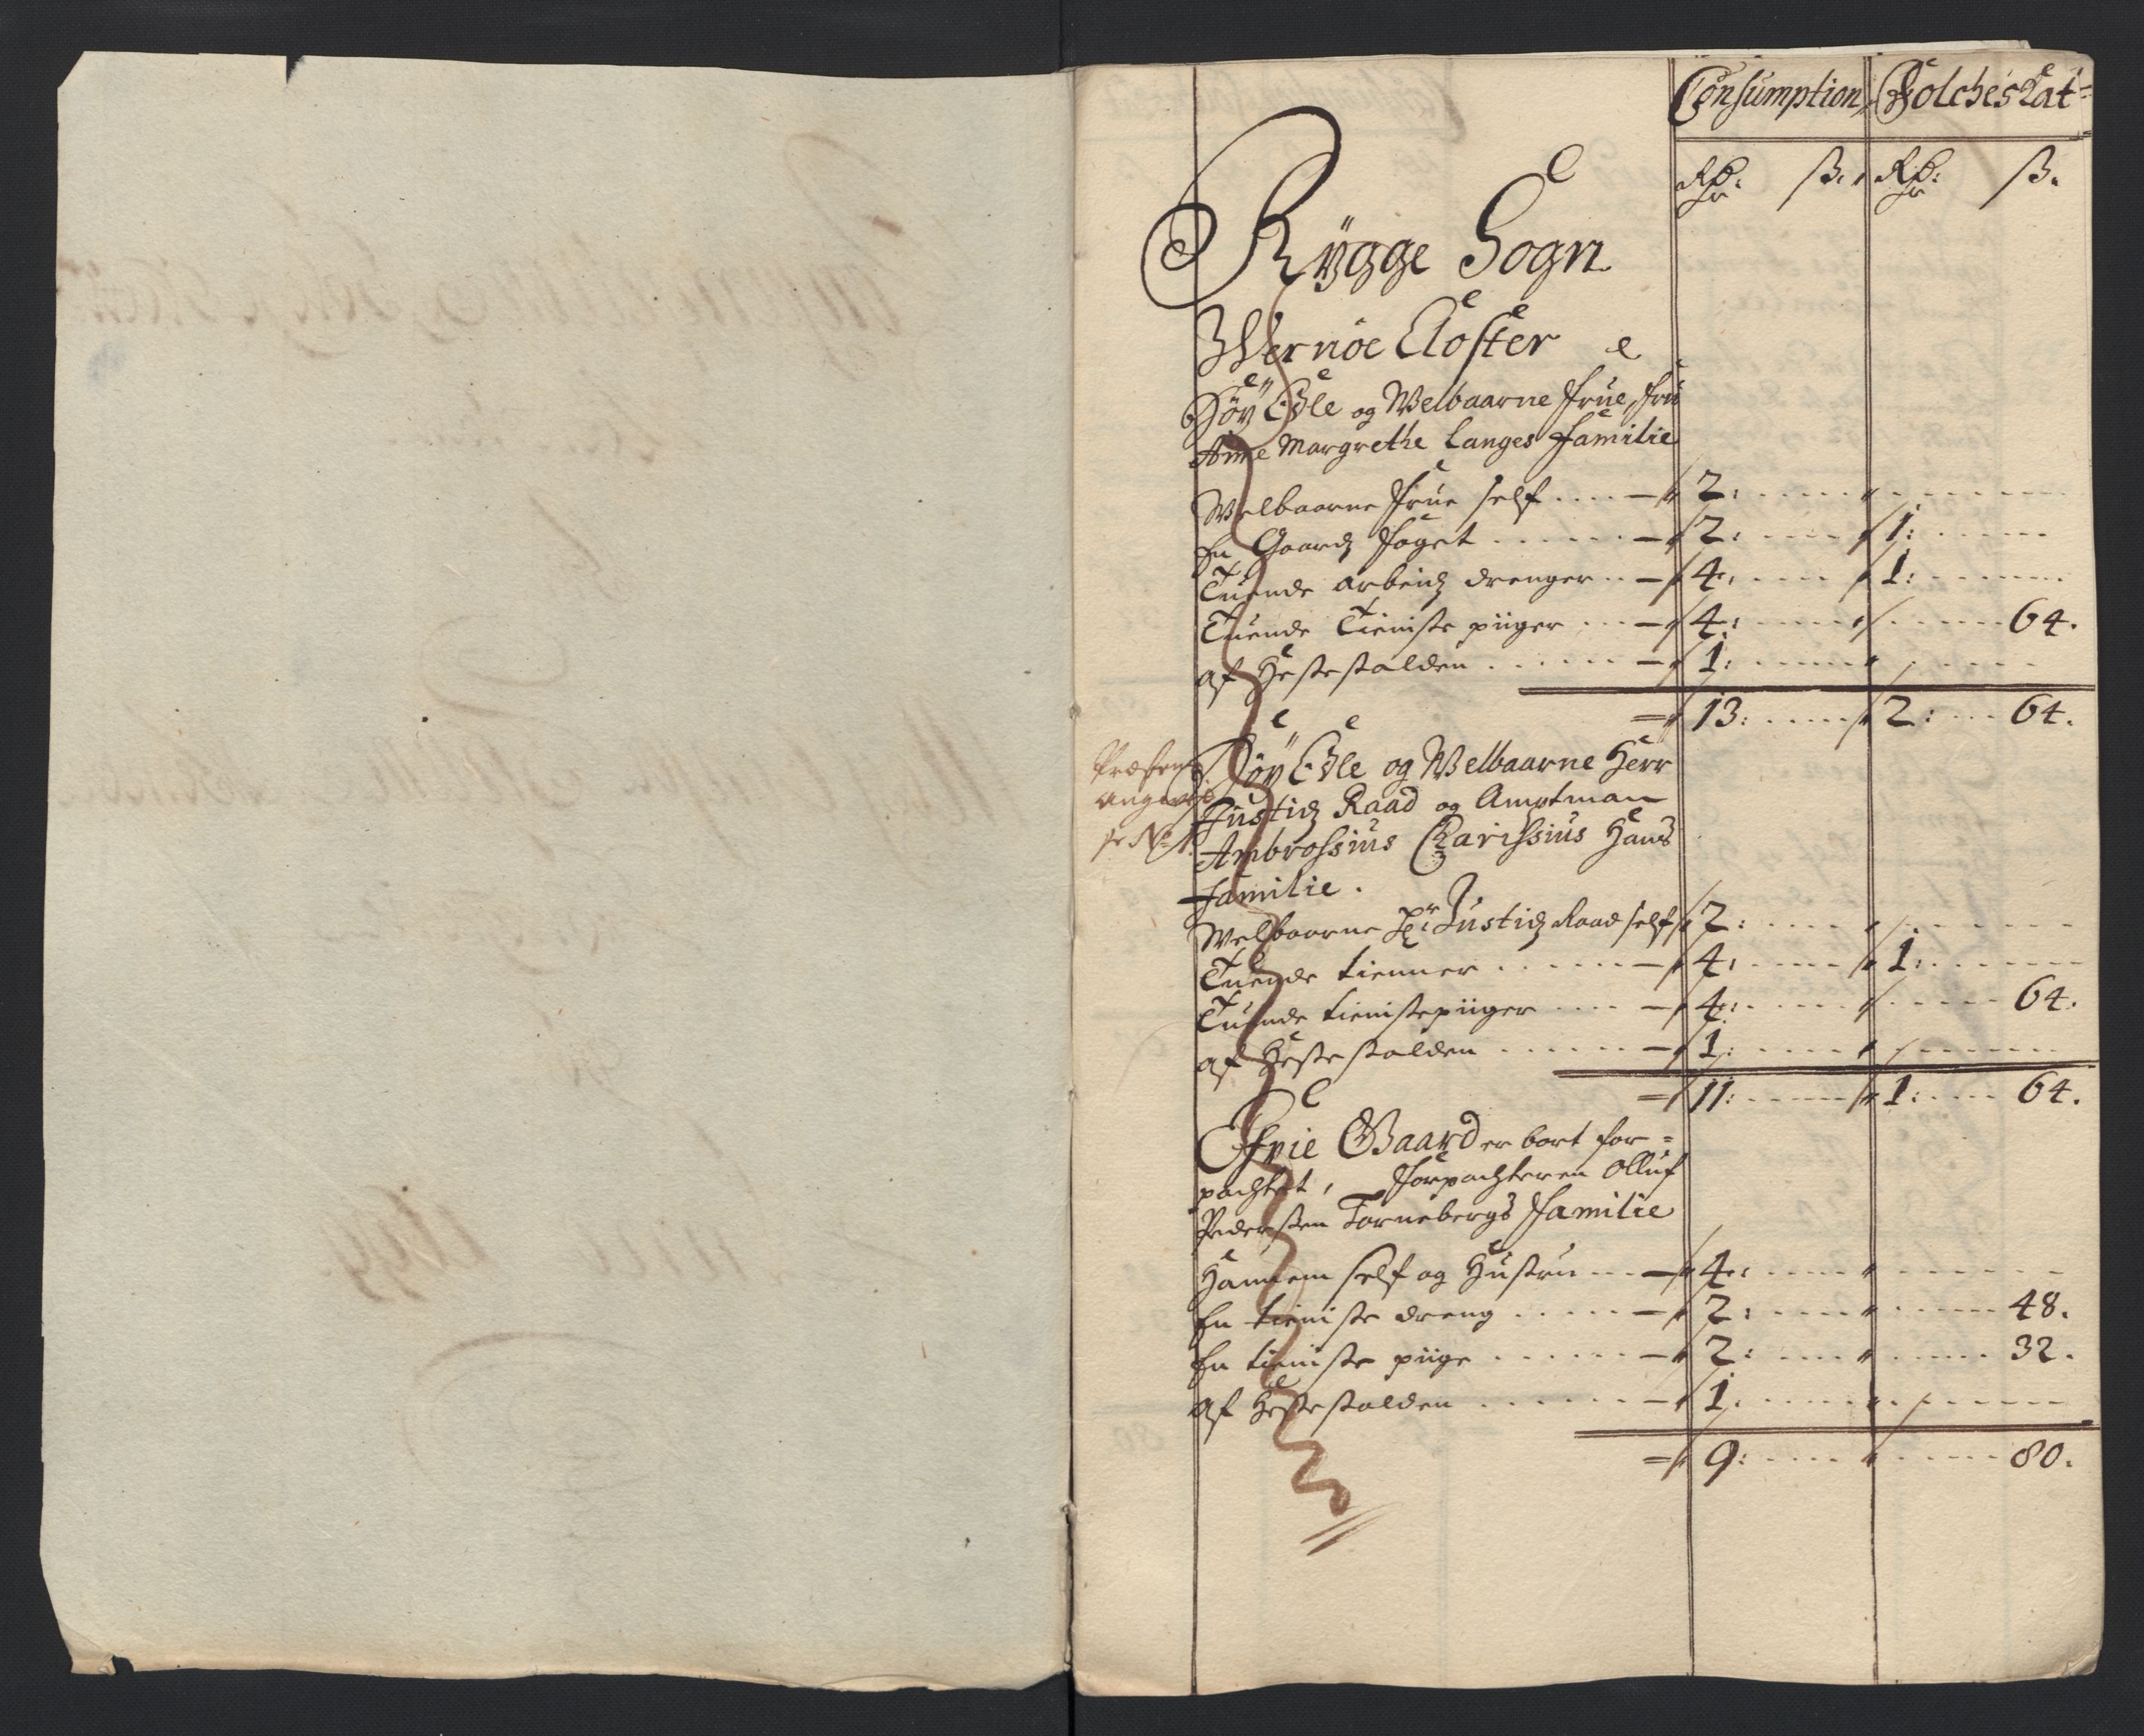 Consumption, FolcheSkat
Rdr: ß. Rdr: ß.
Rÿgge Sogn
Wernøe Closter
Høÿ Edle og Welbaarne Frue, Fru
Anne Margrethe Langes Familie
Welbaarne Frue self .... — 2: ....
En Gaardz Foget ...... — 2: .... 1: ....
Tuende arbeidz drenger .. — 4: .... 1: ....
Tuende Tieniste piiger ... — 4: .... 64.
af Hestestalden ...... — 1: ....
= 13: .... 2: ... 64.
Høÿ Edle og Welbaarne Herr
Justidz Raad og Amptman
Ambrossius Charissius Hans
Familie.
Welbaarne Hr: Justidz Raad self 2: ....
Tuende tienner ...... — 4: .... 1: ....
Tuende tienistepiiger .... — 4: .... 64.
af Hestestalden ...... — 1: ....
= 11: .... 1: .... 64.
Efvie Gaard er bort for=
pachtet, Forpachteren Olluf
Pedersten Tornebergs Familie
Hannem self og Hustru ... — 4: ....
En tieniste dreng ..... — 2: .... 48.
En tieniste piige ...... — 2: .... 32.
af Hestestalden ....... — 1. ....
= 9: .... 80.